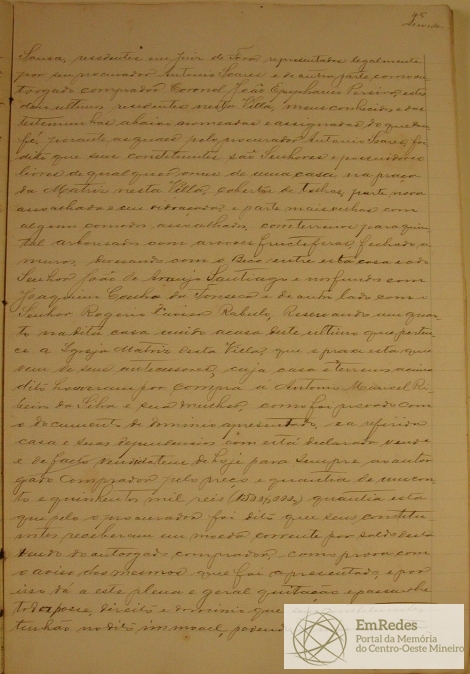 95
Souza, residentes em Juiz de Fora representados legalmente
por seu procurador Antonio Soares e de outra parte como ou-
torgado comprador Coronel João Epiphanio Pereira, este
ultimo residente nesta Villa, meus conhecidos e das
testemunhas abaixo nomeadas e assignadas do que dou
fé, perante as quaes pelo procurador Antonio Soares, foi
dito que seus constituintes são Senhores e possuidores
livres de qual quer onus de uma casa na praça
da Matriz nesta Villa, coberta de telhas, parte nova
assoalhada e envidraçada, e parte mais velha com
algum comodo assoalhado, com terrenos para quin-
tal arborisado com arvores fructiferas, fechado a
muros, com o Beco entre esta casa e a do
Senhor João de Araujo Santiago e nos fundos com
Joaquim da Fonseca e de outro lado com o
Senhor Rogerio Xavier Rabello,
to na dita casa unido a casa deste ultimo que perten-
ce a Igreja Matriz desta Villa, que
de seus antecessores, cuja casa e terrenos acima
ditos houveram por compra a Antonio Manoel Ri-
beiro da Silva e sua mulher, como foi provado com
o documento de dominio apresentado, e a referida
casa e suas dependencias com está declarado vende
e de facto vendido tem de hoje para sempre ao outor-
gado Comprador pelo preço e quantia de um con-
to e quinhentos mil reis quantia esta
que pelo o procurador foi dito que seus constitu-
intes receberam em moeda corrente por saldo desta
venda do outorgado comprador, como prova com
o aviso dos mesmos que foi apresentado, e por
isso dá a este plena e geral quitação e passa-lhe
toda posse, direito e dominio que
tenhão no dito immovel, podendo
EmRedes
Portal da Memória
do Centro-Oeste Mineiro